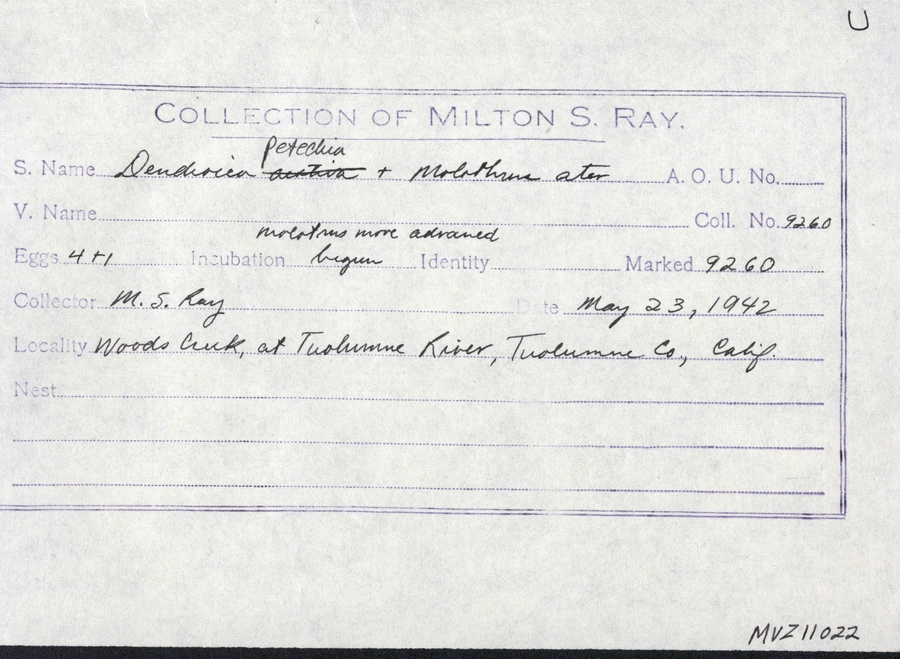 U
COLLECTION OF MILTON S. RAY.
petechia
S. Name Dendroica aestiva + Molothrus ater A. O. U. No.
V. Name Coll. No. 9260
molotrus more advanced
Eggs 4+1 Incubation begun Identity Marked 9260
Collector M. S. Ray Date May 23, 1942
Locality Woods Creek, at Tuolumne River, Tuolumne Co., Calif.
Nest
MVZ11022